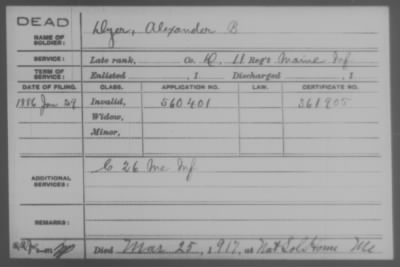 DEAD
NAME OF SOLDIER: Dyer, Alexander B
SERVICE: Late rank, Co. D, 11 Reg't Maine Inf
TERM OF SERVICE: Enlisted , 1 Discharged , 1
DATE OF FILING. CLASS. APPLICATION NO. LAW. CERTIFICATE NO.
1886 Jan 29 Invalid, 560401 361905
Widow,
Minor,
ADDITIONAL SERVICES: C 26 Me Inf
REMARKS:
Died Mar 25, 1917, at Nat Sol Home Me